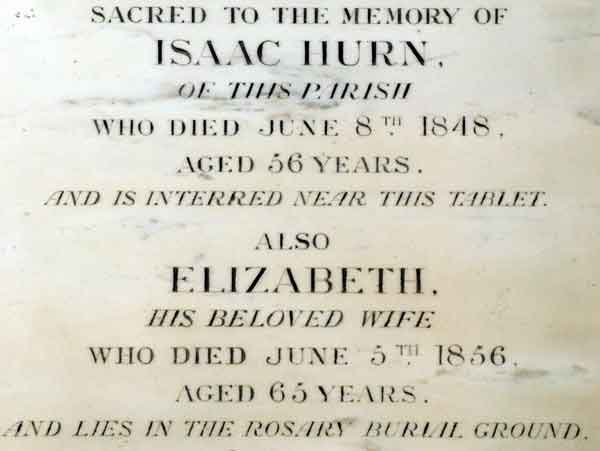 SACRED TO THE MEMORY OF
ISAAC HURN,
OF THIS PARISH
WHO DIED JUNE 8TH 1848,
AGED 56 YEARS.
AND IS INTERRED NEAR THIS TABLET.
ALSO
ELIZABETH,
HIS BELOVED WIFE
WHO DIED JUNE 5TH 1856,
AGED 65 YEARS.
AND LIES IN THE ROSARY BURIAL GROUND.